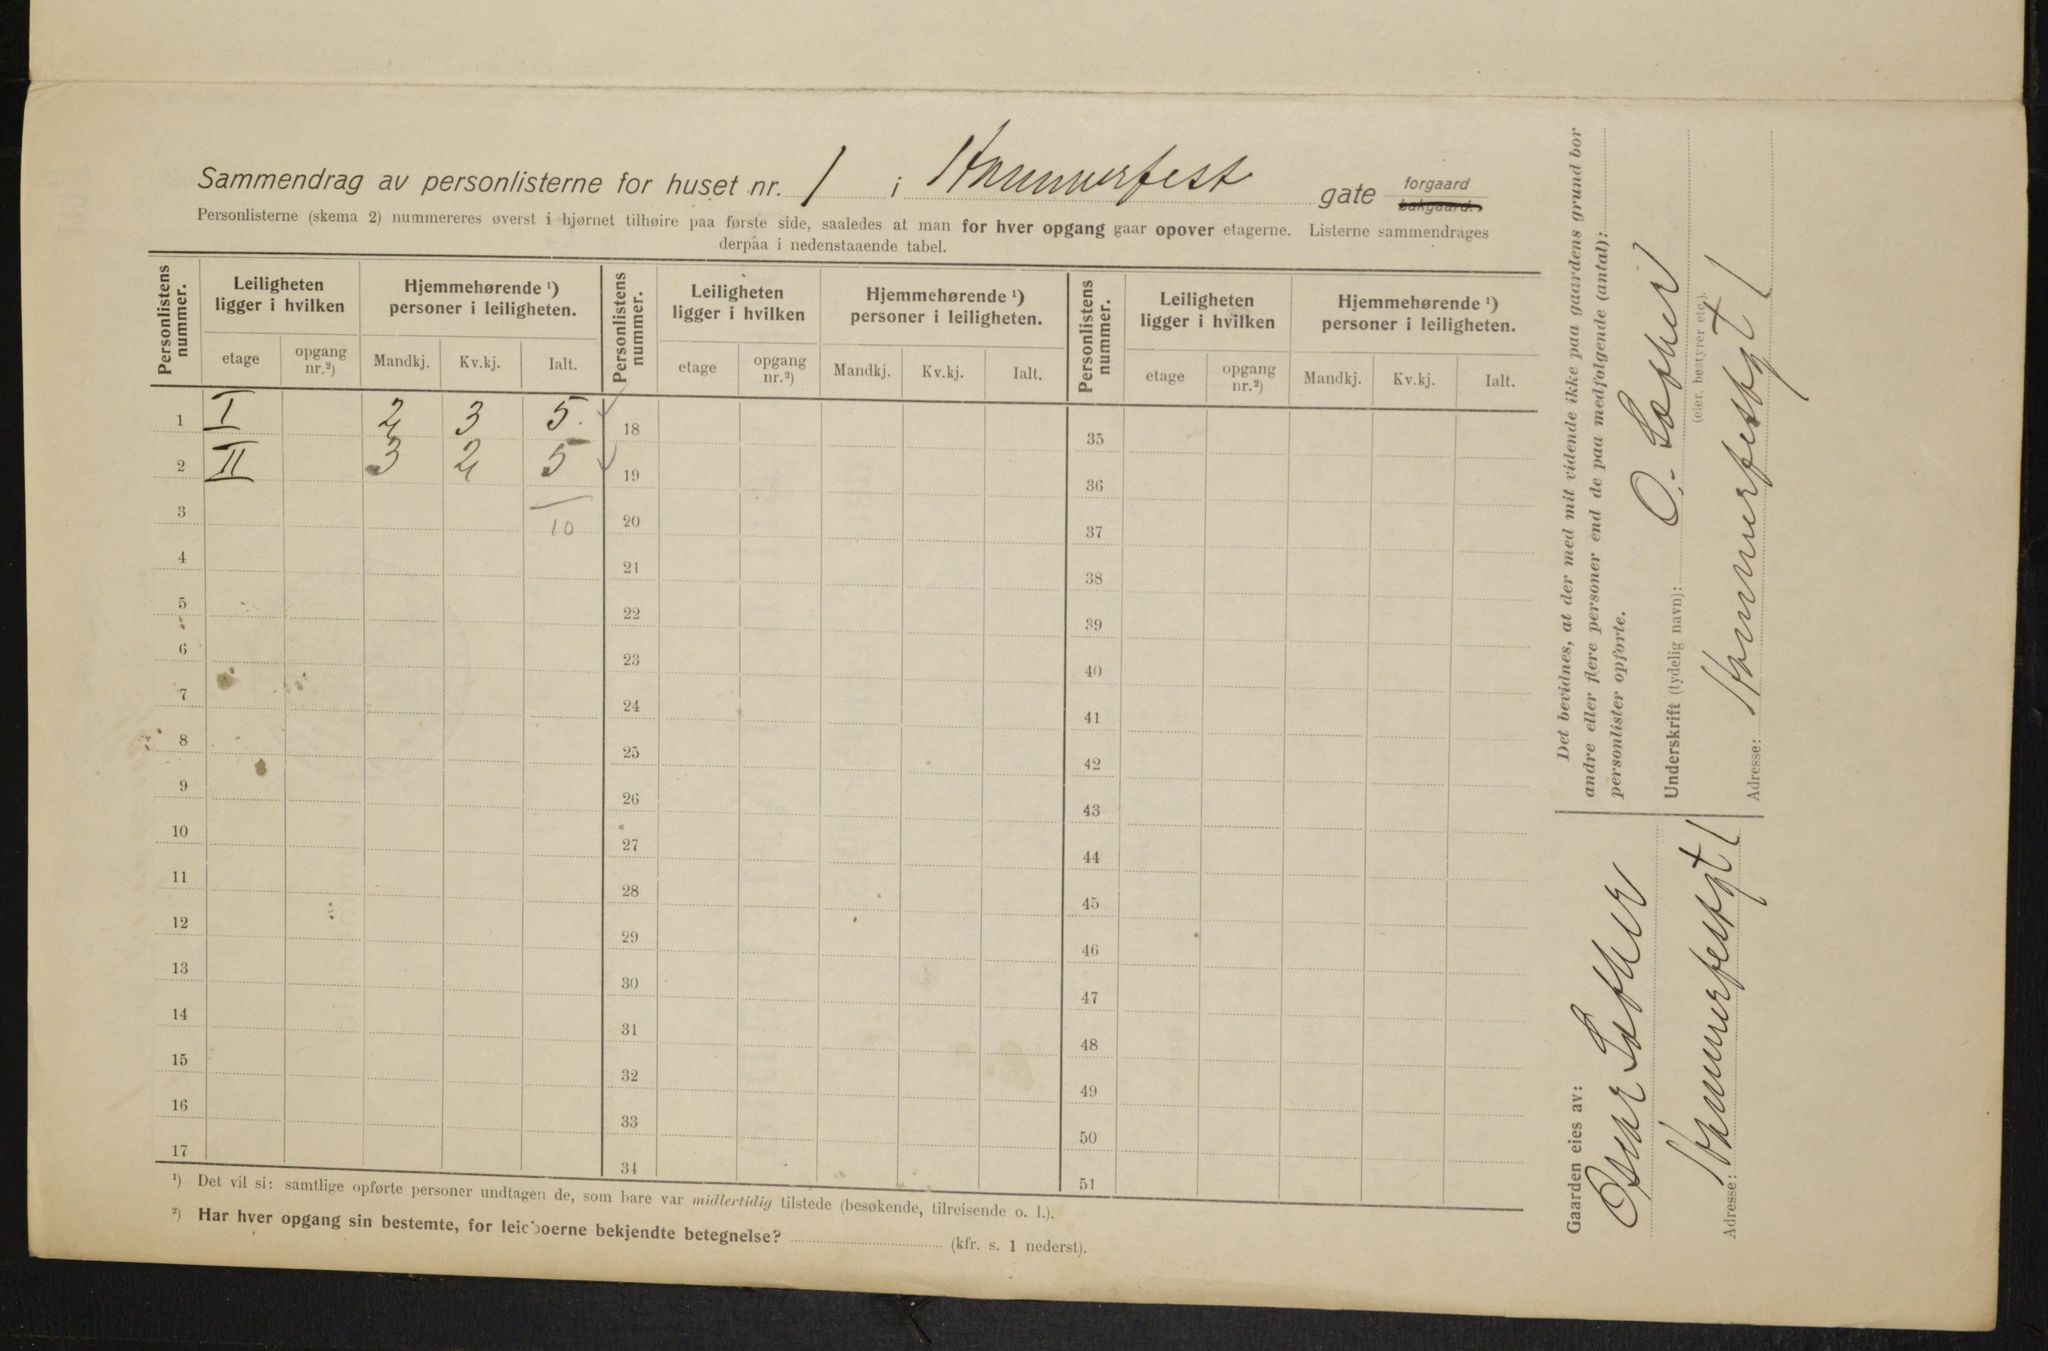 Sammendrag av personlisterne for huset nr. 1 i Hammerfest gate forgaard bakgaard.
Personlisterne (skema 2) nummereres øverst i hjørnet tilhøire paa første side, saaledes at man for hver opgang gaar opover etagerne. Listerne sammendrages
derpaa i nedenstaaende tabel.
Personlistens nummer. Leiligheten ligger i hvilken Hjemmehørende ¹) personer i leiligheten. Personlistens nummer. Leiligheten ligger i hvilken Hjemmehørende ¹) personer i leiligheten. Personlistens nummer. Leiligheten ligger i hvilken Hjemmehørende ¹) personer i leiligheten.
etage opgang nr.²) Mandkj. Kv.kj. Ialt. etage opgang nr.²) Mandkj. Kv.kj. Ialt. etage opgang nr.²) Mandkj. Kv.kj. Ialt.
1 I 2 3 5 18 35
2 II 3 2 5 19 36
3 10 20 37
4 21 38
5 22 39
6 23 40
7 24 41
8 25 42
9 26 43
10 27 44
11 28 45
12 29 46
13 30 47
14 31 48
15 32 49
16 33 50
17 34 51
¹) Det vil si: samtlige opførte personer undtagen de, som bare var midlertidig tilstede (besøkende, tilreisende o. l.).
²) Har hver opgang sin bestemte, for leieboerne bekjendte betegnelse? (kfr. s. 1 nederst).
Det bevidnes, at der med mit vidende ikke paa gaardens grund bor
andre eller flere personer end de paa medfølgende (antal):
personlister opførte.
Underskrift (tydelig navn): O.
(eier, bestyrer etc.).
Adresse: Hammerfestgt 1
Gaarden eies av:
Oskar
Adresse: Hammerfestgt 1